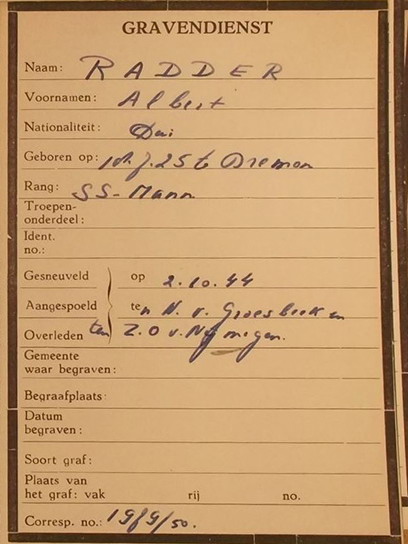 GRAVENDIENST
Naam: RADDER
Voornamen: Albert
Nationaliteit: Dui
Geboren op: 25 te Bremen
Rang: SS-Mann
Troepen-
onderdeel:
Ident.
no.:
Gesneuveld op 2.10.44
Aangespoeld ten N. v. Groesbeek en
Overleden ten Z.O v. Nijmegen.
Gemeente
waar begraven:
Begraafplaats:
Datum
begraven:
Soort graf:
Plaats van
het graf: vak rij no.
Corresp. no.: /50.